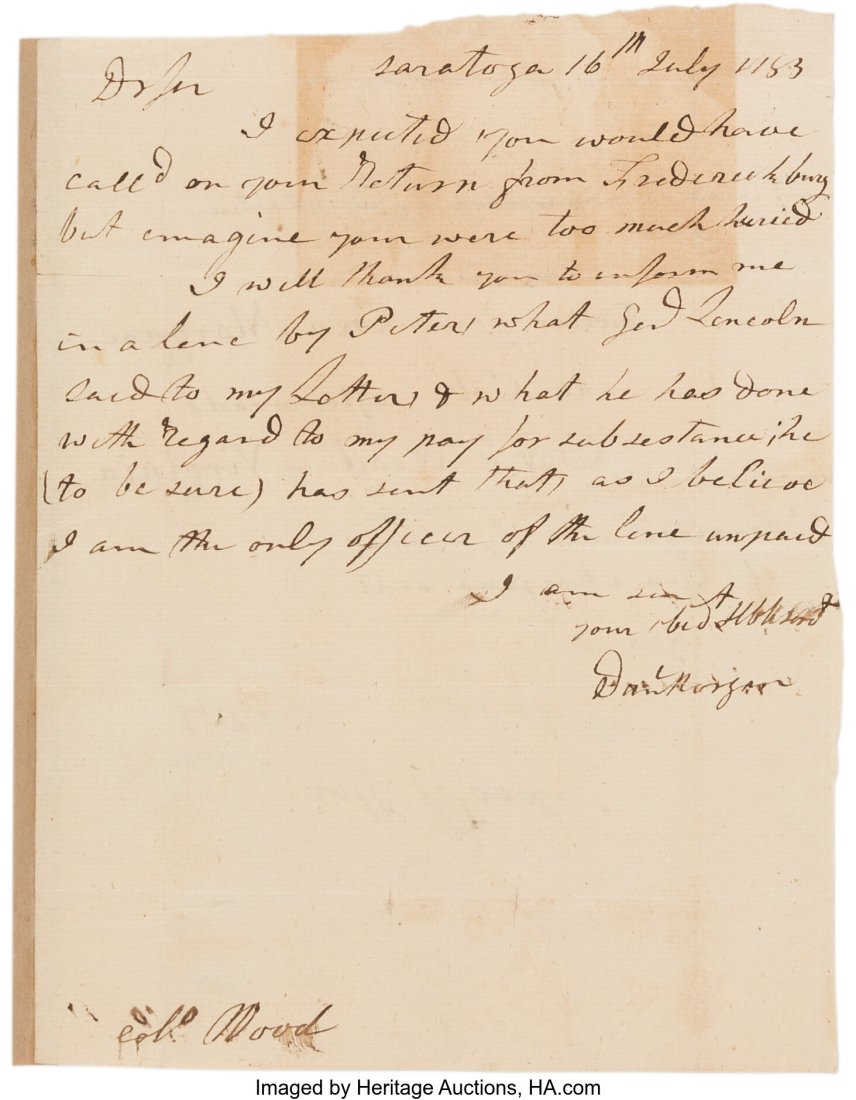 Saratoga 16th July 1783
Dr Sir
I expected you would have
calld on your Return from Frederickburg
but emagine your were too much huried
I will thank you to inform me
in a line by Peter, what Genl Lincoln
said to my Letter, & what he has done
with Regard to my pay for subsestance; he
(to be sure) has sent that, as I believe
I am the only officer of the line unpaid
I am
your obed Hble servt
Danl Morgan
Colo. Wood
Imaged by Heritage Auctions, HA.com